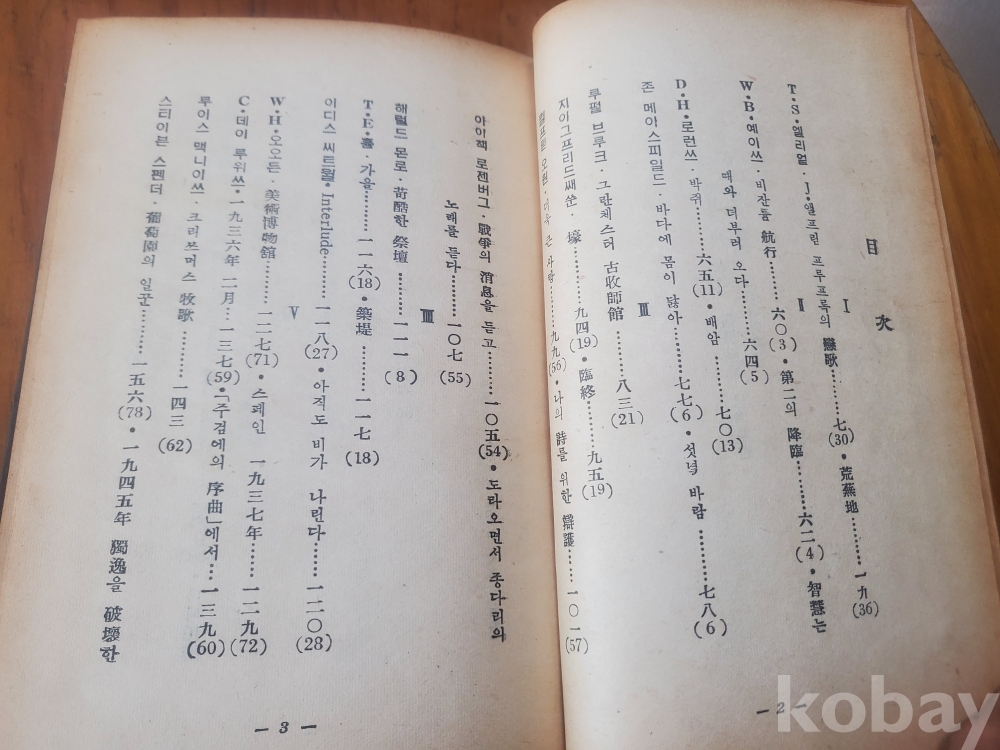 目 次
I
T·S·엘리얼·J·앨프릳 프루프록의 戀歌……七(30)·荒蕪地……一九(36)
II
W·B·예이쓰·비잔튬 航行……六〇(3)·第二의 降臨……六二(4)·智慧는
때와 더부러 오다……六四(5)
D·H·로런쓰·박쥐……六五(11)·배암……七〇(13)
존 메이스피일드·바다에 몸이 닳아……七七(6)·섯녘 바람……七八(6)
III
루펄 브루크·그란체스터 古牧師館……八三(21)
지이그프리드 쌔쑨·壕……九四(19)·臨終……九五(19)
오원·더욱 큰 사랑……九九(56)·나의 詩를 위한 辯護……一〇一(57)
— 2 —
아이잭 로젠버그·戰爭의 消息을 듣고……一〇五(54)·도라오면서 종다리의
노래를 듣다……一〇七(55)
III
해럴드 몬로·苛酷한 祭壇……一一一(8)
T·E·흄·가을……一一六(18)·築堤……一一七(18)
이디스 씨트웰·Interlude……一一八(27)·아직도 비가 나린다……一二〇(28)
V
W·H·오오든·美術博物館……一二七(71)·스페인 一九三七年……一二九(72)
C·데이 루위쓰·一九三六年 二月……一三七(59)·「주검에의 序曲」에서……一三九(60)
루이스 맥니이쓰·크리쓰머스 牧歌……一四三(62)
스티이븐 스펜더·葡萄園의 일꾼……一五六(78)·一九四五年 獨逸을 破壞한
— 3 —
kobay